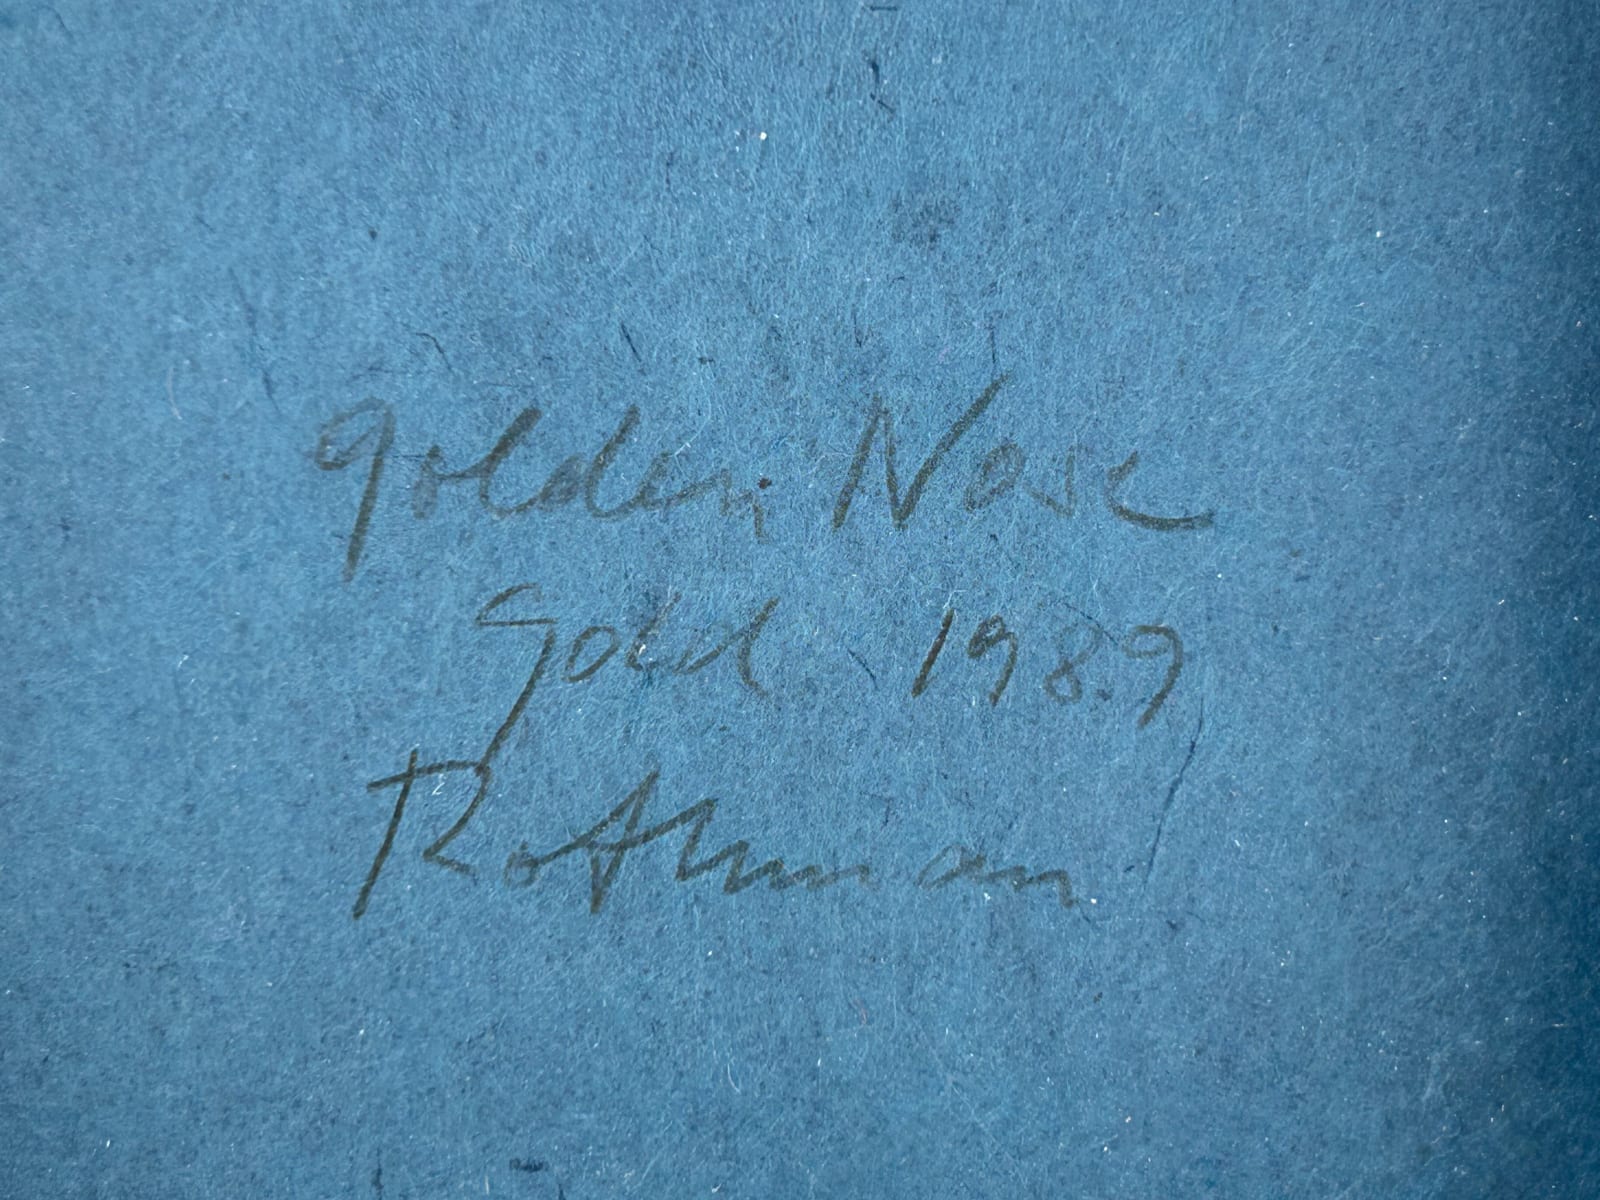 golden Nose
Gold 1989
Rothman